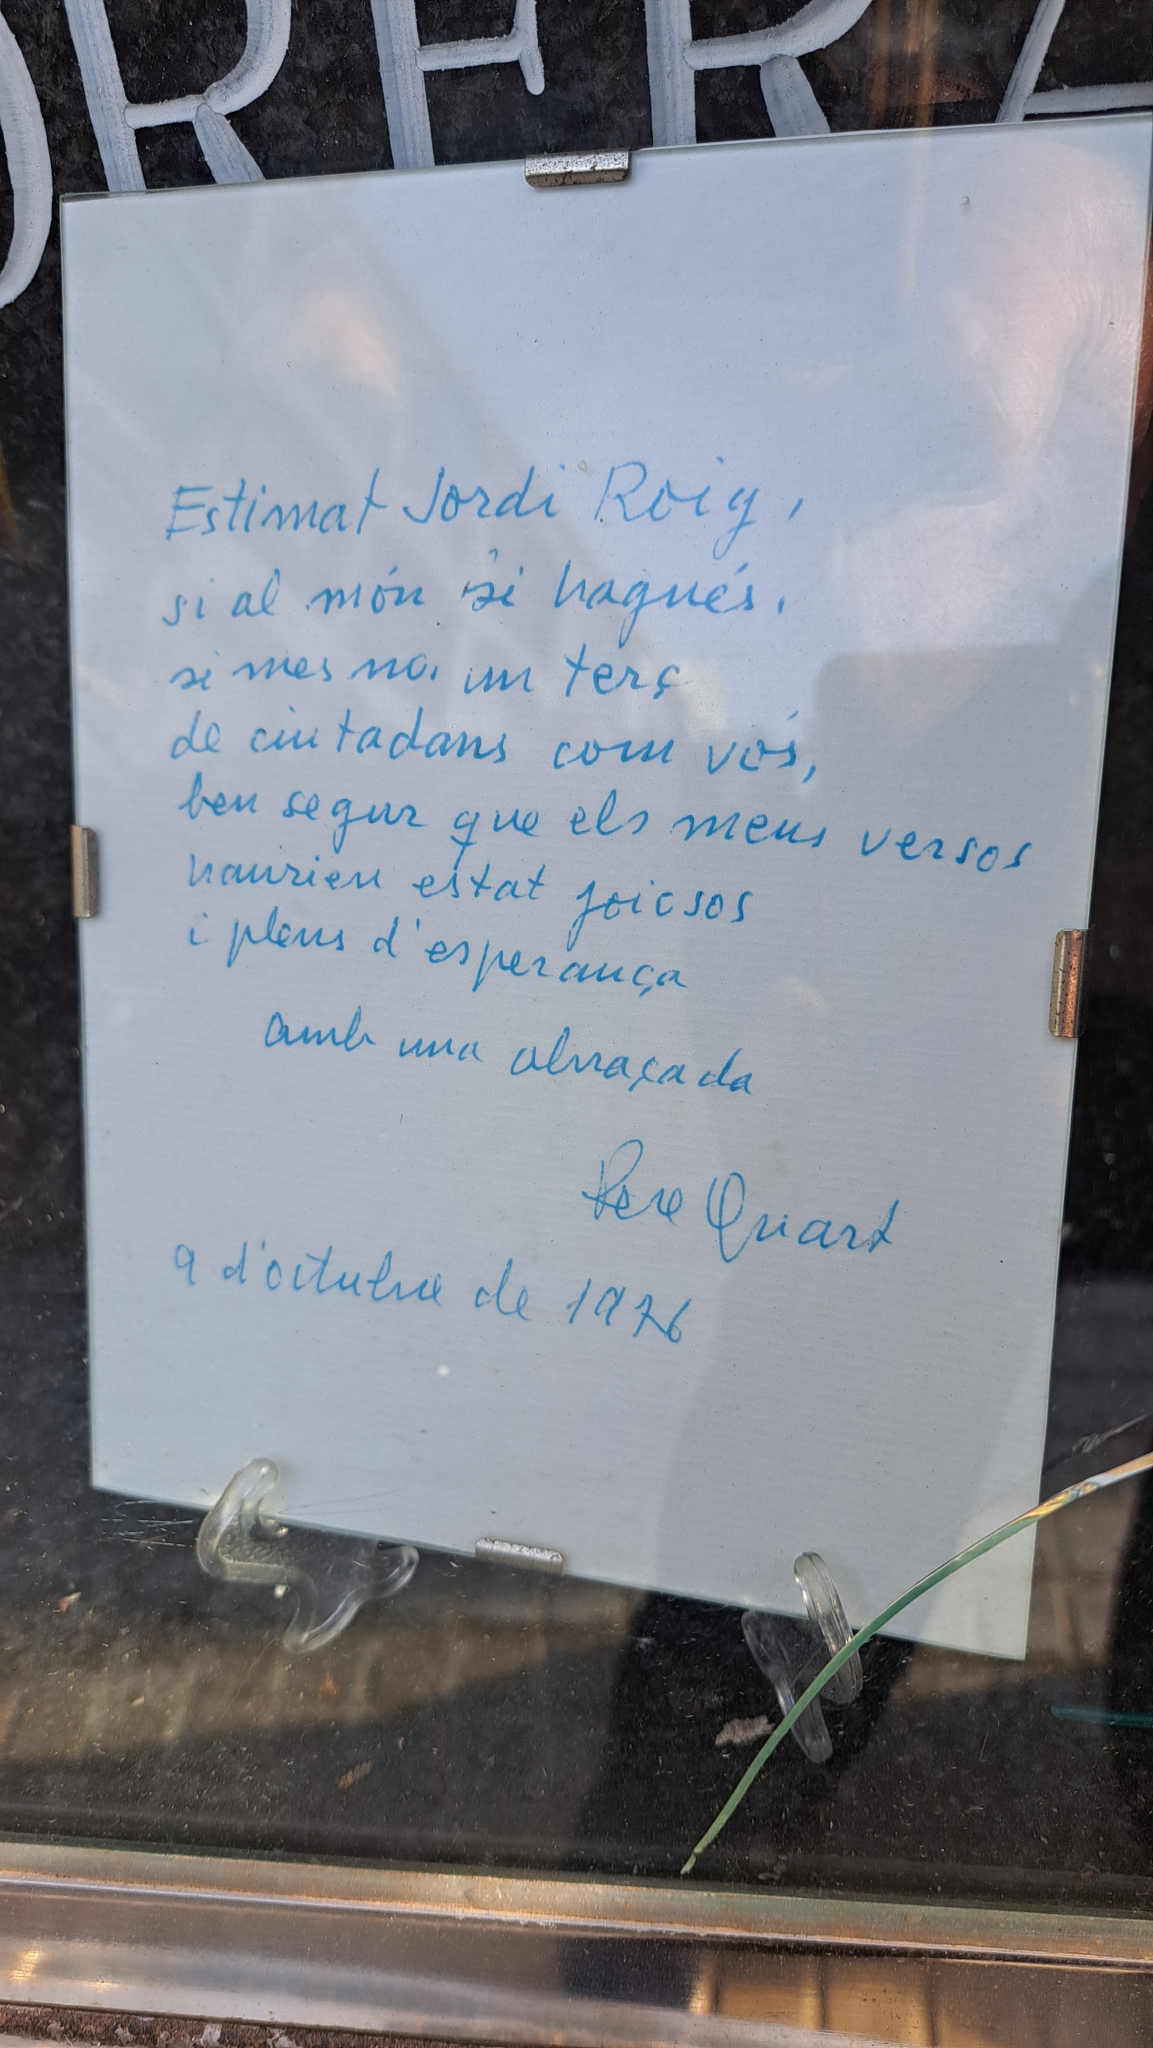 ORERA
Estimat Jordi Roig,
si al món si hagués,
si mes no, un terç
de ciutadans com vós,
ben segur que els meus versos
haurien estat joiosos
i plens d'esperança
amb una abraçada
Pere Quart
9 d'octubre de 1976